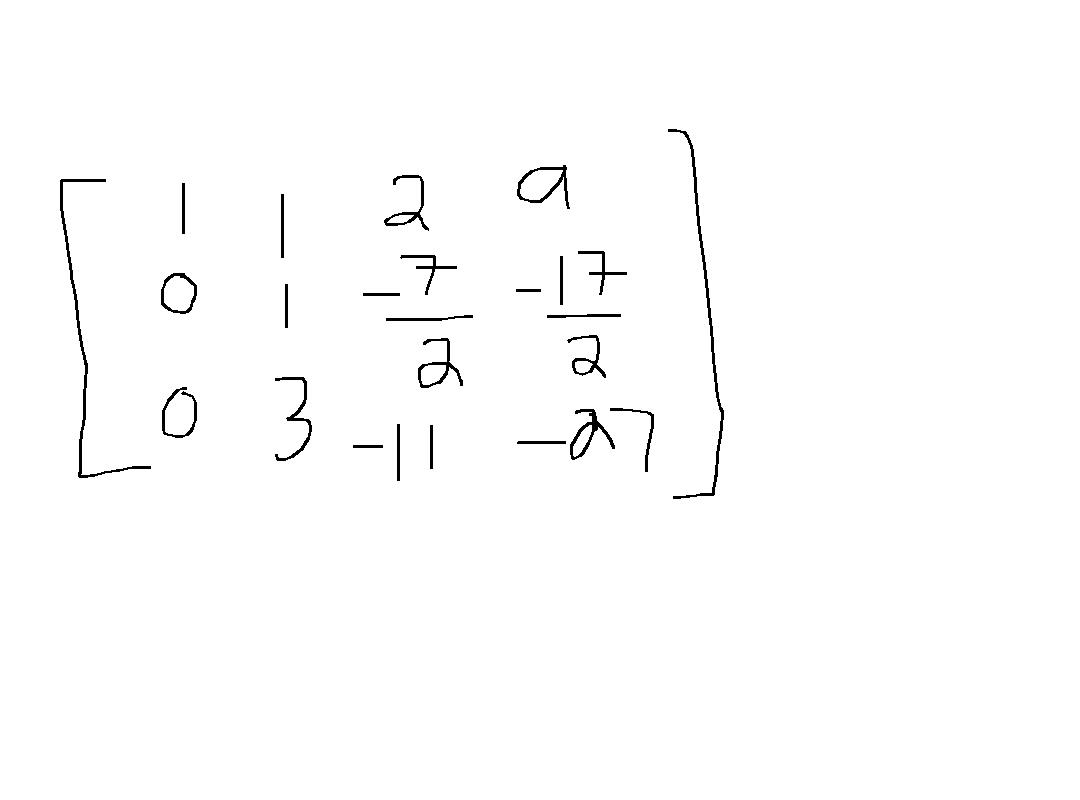 [ 1 1 2 a
0 1 -7/2 -17/2
0 3 -11 -27 ]